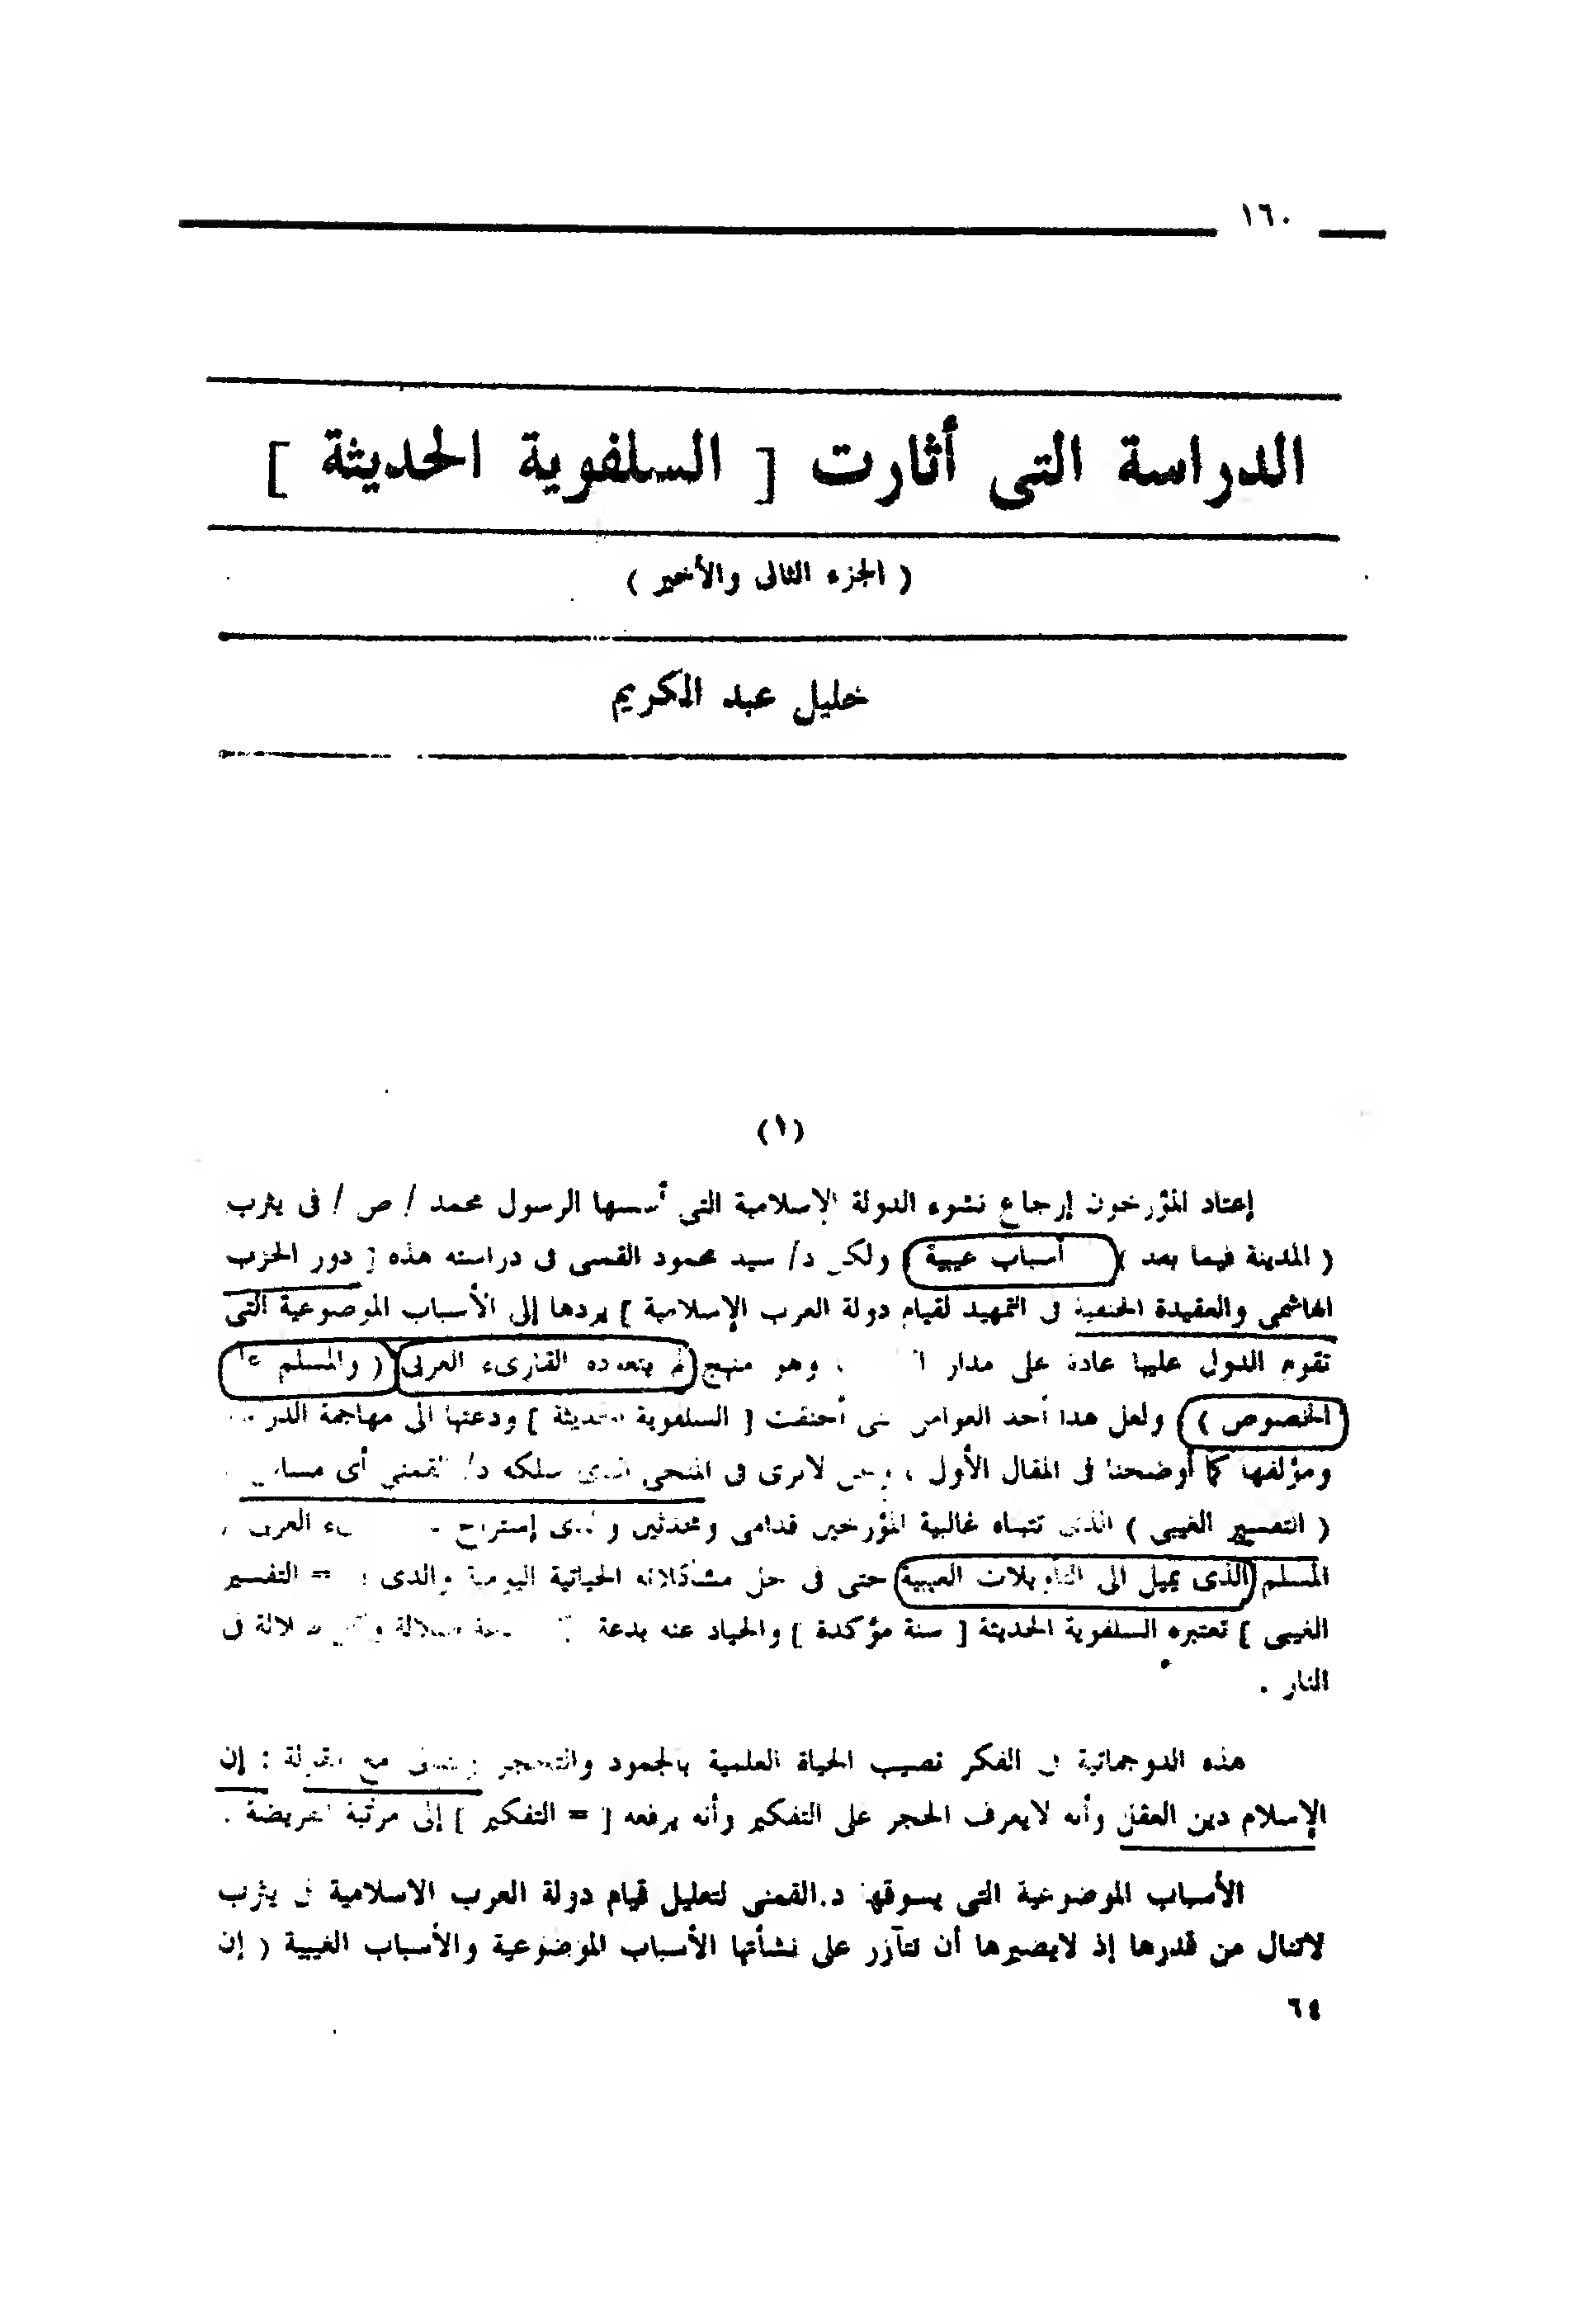 ١٦٠
الدراسة التى أثارت [ السلفوية الحديثة ]
( الجزء الثانى والأخير )
خليل عبد الكريم
(١)
إعتاد المؤرخون إرجاع نشوء الدولة الإسلامية التى أسسها الرسول محمد / ص / فى يثرب
( المدينة فيما بعد ) أسباب غيبية ولكن د/ سيد محمود القمنى فى دراسته هذه [ دور الحزب
الهاشمى والعقيدة الحنفية فى التمهيد لقيام دولة العرب الإسلامية ] يردها إلى الأسباب الموضوعية التى
تقوم الدول عليها عادة على مدار وهو منهج لم يتعوده القارىء العربى ( والمسلم
الخصوص ) ولعل هذا أحد العوامل التى أحنقت [ السلفوية الحديثة ] ودعتها الى مهاجمة
ومؤلفها كما أوضحنا فى المقال الأول ، ونحن لانرى فى المنحى الذى سلكه د/ القمنى أى مساس
( التفسير الغيبى ) الذى تتبناه غالبية المؤرخين قدامى ومحدثين العربى
المسلم الذى يميل الى التأويلات الغيبية حتى فى حل مشكلاته الحياتية اليومية والذى = التفسير
الغيبى ] تعتبره السلفوية الحديثة [ سنة مؤكدة ] والحياد عنه بدعة ضلالة وكل ضلالة فى
النار .
هذه الدوجماتية فى الفكر تصيب الحياة العلمية بالجمود والتحجر مع مقولة : إن
الإسلام دين العقل وأنه لايعرف الحجر على التفكير وأنه يرفعه [ = التفكير ] إلى مرتبة الفريضة .
الأسباب الموضوعية التى يسوقها د.القمنى لتعليل قيام دولة العرب الاسلامية فى يثرب
لاتنال من قدرها إذ لايضيرها أن تتآزر على نشأتها الأسباب الموضوعية والأسباب الغيبية ( إن
٦٤